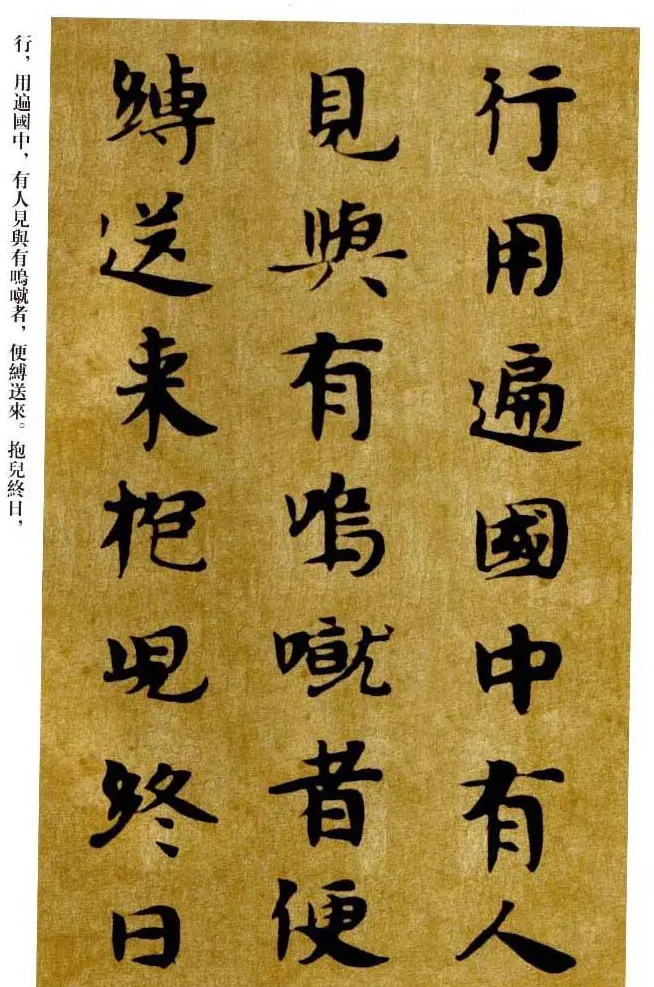 行用遍國中有人
見與有嗚噈者便
縛送来抱兒終日
行，用遍國中，有人見與有嗚噈者，便縛送來。抱兒終日，